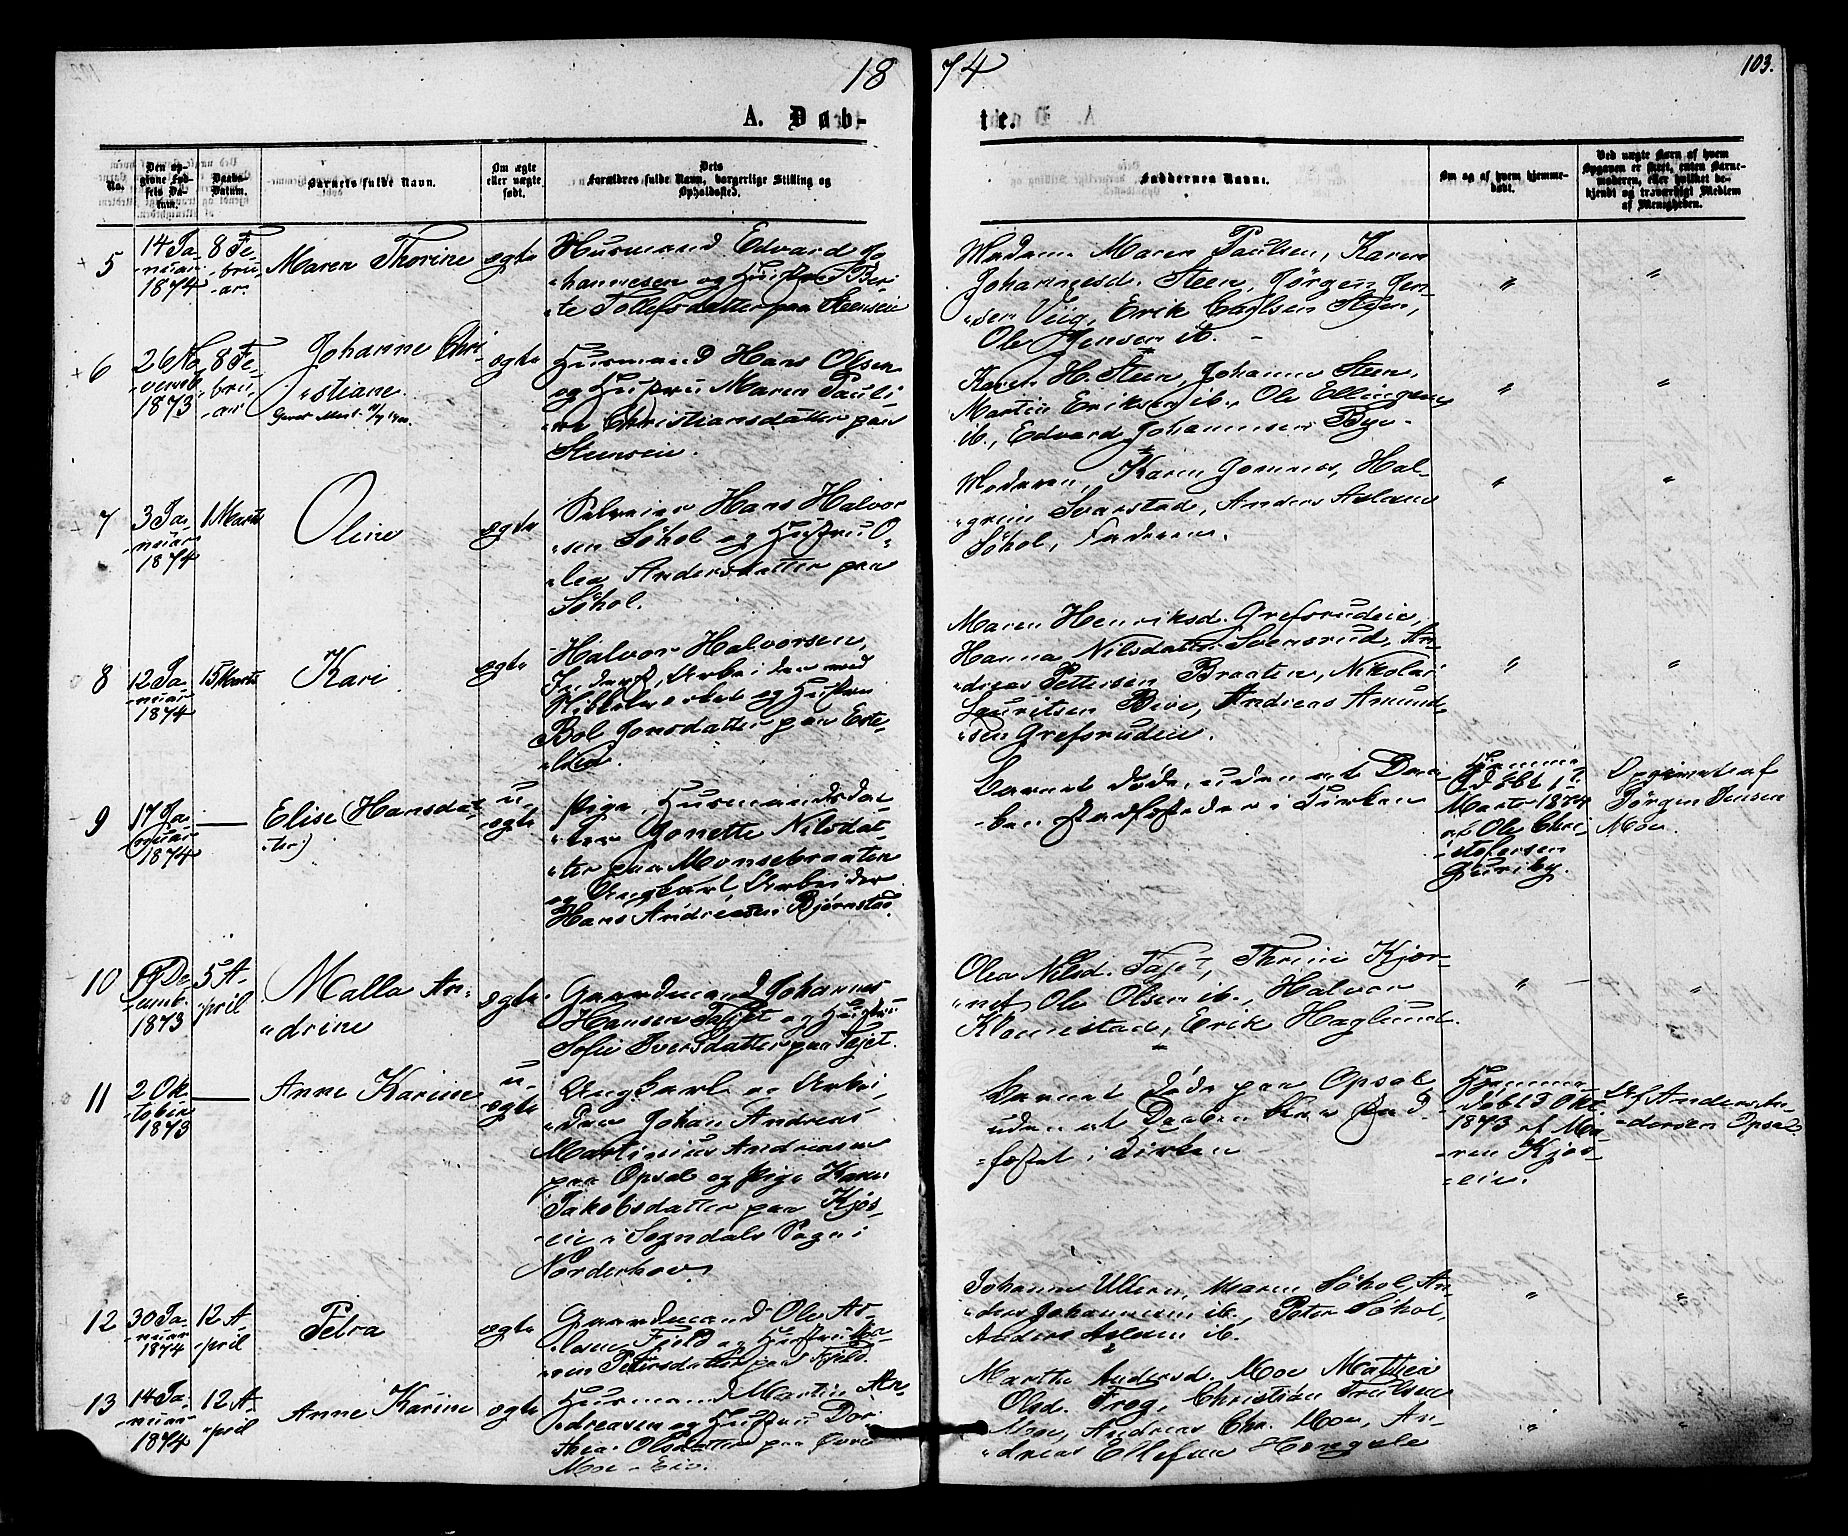 1874
103.
A. Daabte.
No.
Den opgivne Fødsels Datum.
Daabs-Datum.
Barnets fulde Navn.
Om ægte eller uægte født.
Dets Forældres fulde Navn, borgerlige Stilling og Opholdssted.
Faddernes Navne.
Om og af hvem hjemmedøbt.
Ved uægte Barn af hvem Opgaven er skeet, enten Barnemoderen, eller hvilket bekjendt og troværdigt Medlem af Menigheden.
5
14 Ja-
nuar
1874
8 Fe-
bru-
ar.
Maren Thorine
ægte
Husmand Edvard Jo-
hannesen og Hustru Ber-
te Tollefsdatter paa Steenseie
Madam Maren Paulsen, Karen
Johannesd. Steen, Jørgen Jen-
sen Veig, Erik Carlsen Steen,
Ole Jensen ib.
"
"
6
26 No-
vemb.
1873
8 Fe-
bru-
ar
Johanne Chri-
stiane.
ægte
Husmand Hans Olsen
og Hustru Maren Pauli-
ne Christiansdatter paa
Steenseie.
Karen H. Steen, Johanne Steen,
Martin Eriksen ib., Ole Ellingsen
ib., Edvard Johannesen Bye.
"
"
7
3 Ja-
nuar
1874
1 Marts
Oline
ægte
Selveier Hans Halvor-
sen Søhol og Hustru O-
lea Andersdatter paa
Søhol.
Madam Karen Gomnes, Hal-
grim Svarstad, Anders Aslaksen
Søhol, Faderen.
"
"
8
12 Ja-
nuar
1874
15 Marts
Kari
ægte
Halvor Halvorsen,
Inderst, Arbeider ved
Nikkelverket og Hustru
Bol Jonsdatter paa Erte-
lien
Maren Henriksd. Grefsrudeie,
Hanna Nilsdatter Svensrud, An-
dreas Pettersen Braaten, Nikolai
Lauritsen Bive, Andreas Amund-
sen Grefsrudeie.
"
"
9
17 Ja-
nuar
1874
Elise (Hansdat-
ter)
u-
ægte
Pige, Husmandsdat-
ter Jonette Nilsdat-
ter paa Monsebraaten
og Ungkarl Arbeider
Hans Andreasen Bjørnstad.
Barnet døde, uden at Daa-
ben stadfæstedes i Kirken
Hjemme-
døbt 1
Marts 1874
af Ole Chri-
stofersen
Guriby.
Opgivet af
Jørgen Jensen
Moe.
10
De-
cemb.
1873
5 A-
pril
Malla An-
drine
ægte
Gaardmand Johannes
Hansen Tajet og Hustru
Sofie Iversdatter paa Tajet.
Olea Nilsd. Tajet, Thrine Kjær-
net, Ole Olsen ib., Halvor
Klommestad, Erik Haglund.
"
"
11
2 Ok-
tober
1873
Anne Karine
u-
ægte
Ungkarl og Arbei-
der Johan Andreas
Martinius Andersen
paa Opsal og Pige Karen
Jakobsdatter paa Kjøs-
eie i Sogndals Sogn i
Norderhov.
Barnet døde paa Opsal
uden at Daaben blev stad-
fæstet i Kirken
Hjemme-
døbt 3 Okt.
1873 af Ma-
ren Kjøs-
eie.
Af Anders An-
dersen Opsal.
12
30 Ja-
nuar
1874
12 A-
pril
Petra
ægte
Gaardmand Ole As-
lesen Fjeld og Hustru Ka-
ren Petersdatter paa Fjeld.
Johanne Ullern, Maren Søhol, An-
ders Johannesen ib., Peter Søhol,
Anders Aslesen ib.
"
"
13
14 Ja-
nuar
1874
12 A-
pril
Anne Karine
ægte
Husmand Martin An-
dreasen og Hustru Dor-
thea Olsdatter paa Øvre
Moe-Eie.
Marthe Andersd. Moe, Mathea
Olsd. Trøg, Christian Trulsen
Moe, Andreas Chr. Moe, An-
dreas Ellefsen Hongsle
"
"